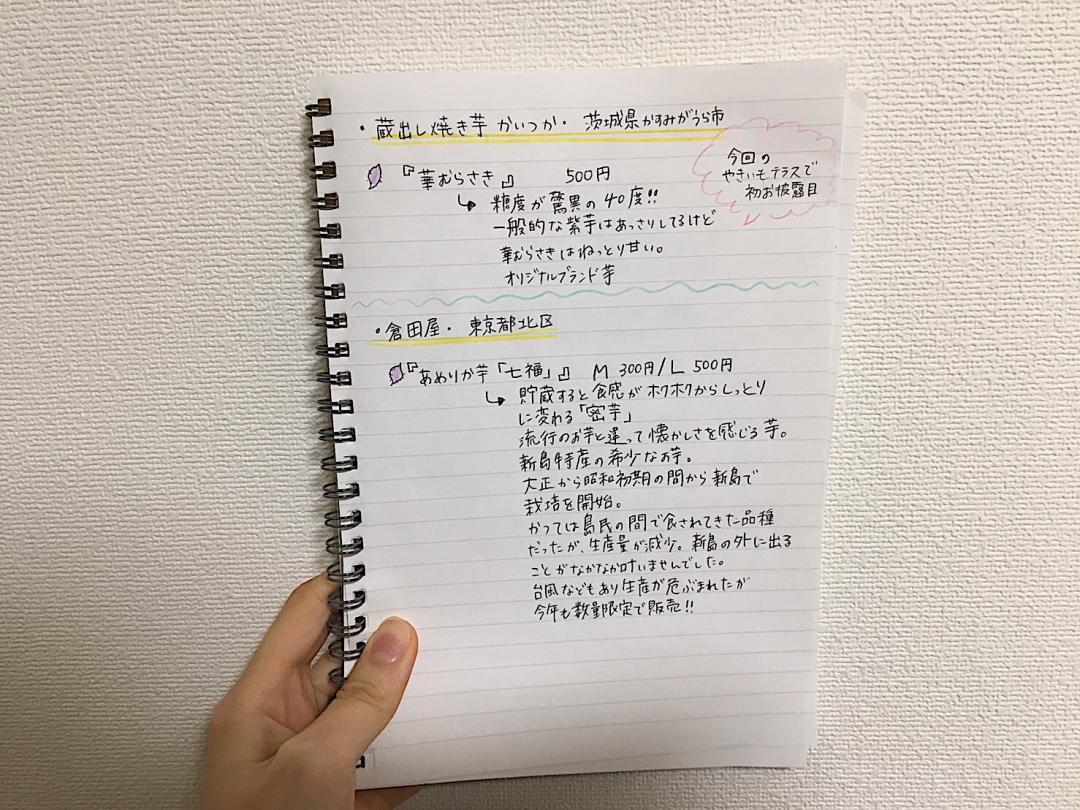 ・蔵出し焼き芋 かいつか・ 茨城県かすみがうら市
今回の
やきいもテラスで
初お披露目
『華むらさき』 500円
↳ 糖度が驚異の40度!!
一般的な紫芋はあっさりしてるけど
華むらさきはねっとり甘い。
オリジナルブランド芋
・倉田屋・ 東京都北区
『あめりか芋「七福」』 M 300円/L 500円
↳ 貯蔵すると食感がホクホクからしっとり
に変わる「密芋」
流行のお芋と違って懐かしさを感じる芋。
新島特産の希少なお芋。
大正から昭和初期の間から新島で
栽培を開始。
かつては島民の間で食されてきた品種
だったが、生産量が減少。新島の外に出る
ことがなかなか叶いませんでした。
台風などもあり生産が危ぶまれたが
今年も数量限定で販売!!